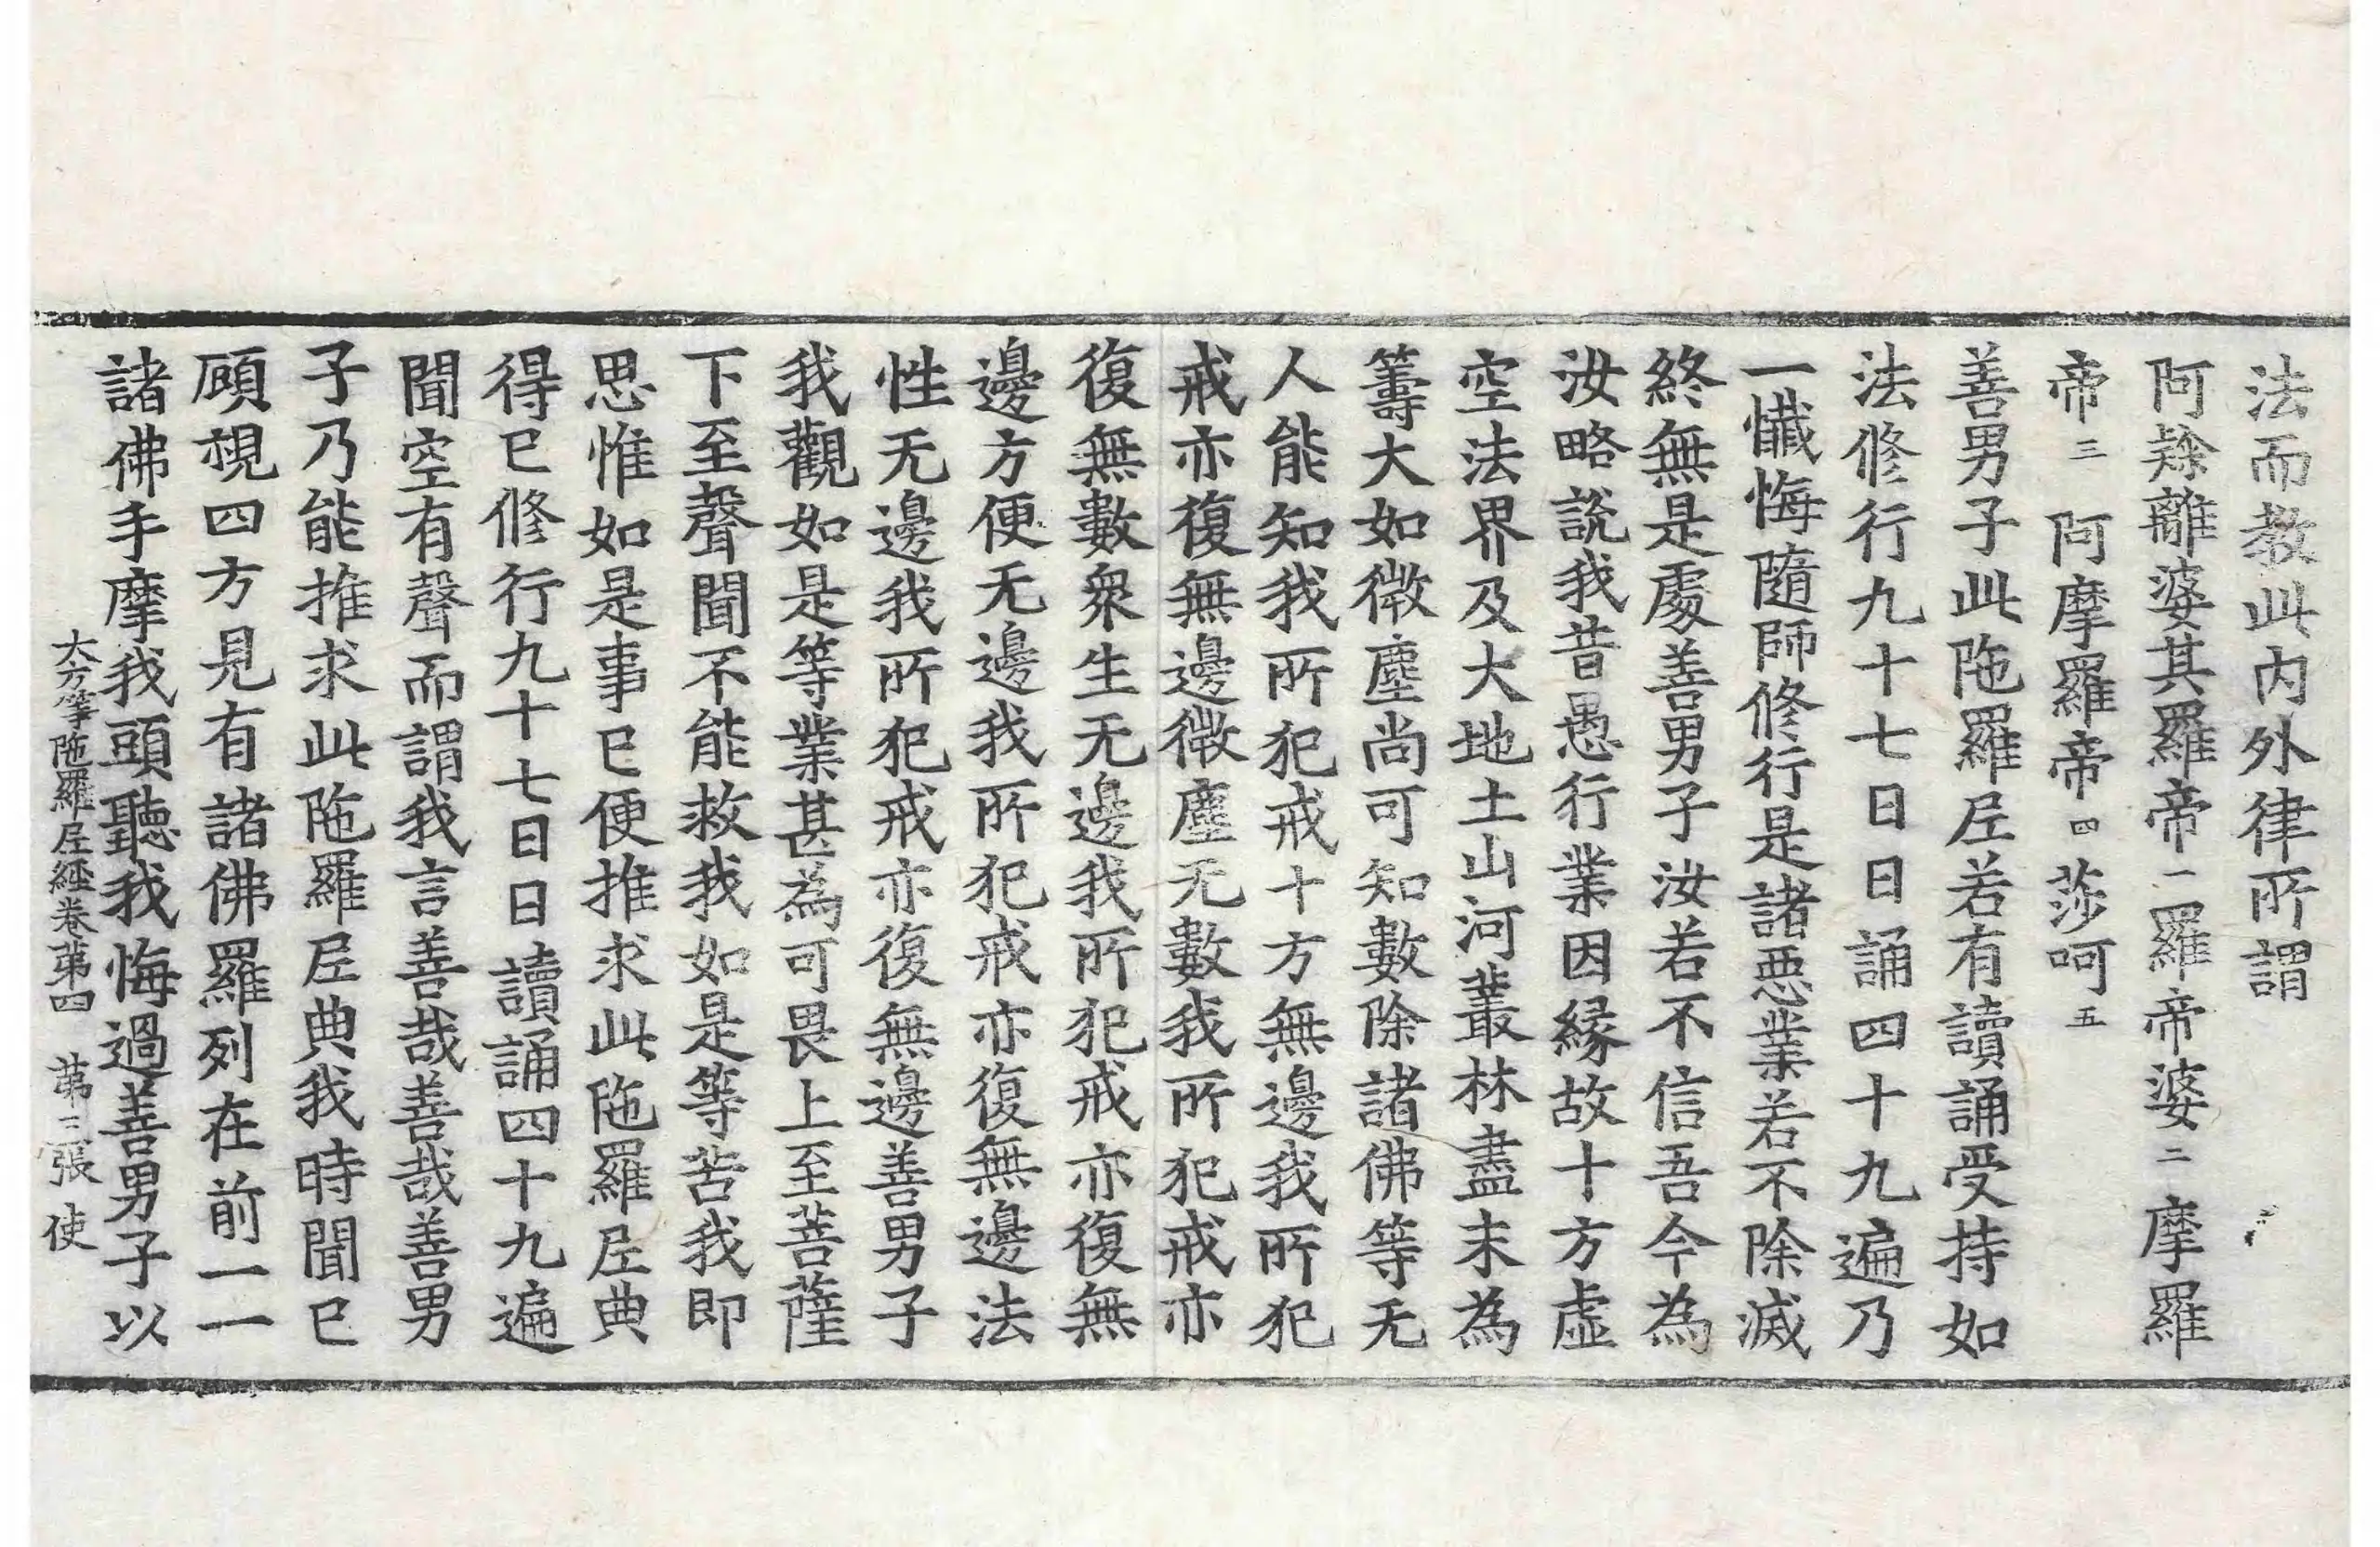 法而教此内外律所謂
阿䟽離婆其羅帝一羅帝婆二摩羅
帝三 阿摩羅帝四 莎呵五
善男子此陁羅𡰱若有讀誦受持如
法修行九十七日日誦四十九遍乃
一懺悔隨師修行是諸惡業若不除滅
終無是處善男子汝若不信吾今為
汝略說我昔愚行業因緣故十方虛
空法界及大地土山河叢林盡末為
籌大如微塵尚可知數除諸佛等无
人能知我所犯戒十方無邊我所犯
戒亦復無邊微塵无數我所犯戒亦
復無數衆生无邊我所犯戒亦復無
邊方便无邊我所犯戒亦復無邊法
性无邊我所犯戒亦復無邊善男子
我觀如是等業甚為可畏上至菩薩
下至聲聞不能救我如是等苦我即
思惟如是事已便推求此陁羅𡰱典
得已修行九十七日日讀誦四十九遍
聞空有聲而謂我言善哉善哉善男
子乃能推求此陁羅𡰱典我時聞已
顧視四方見有諸佛羅列在前一一
諸佛手摩我頭聽我悔過善男子以
大方等陁羅𡰱經卷第四 第三張 使